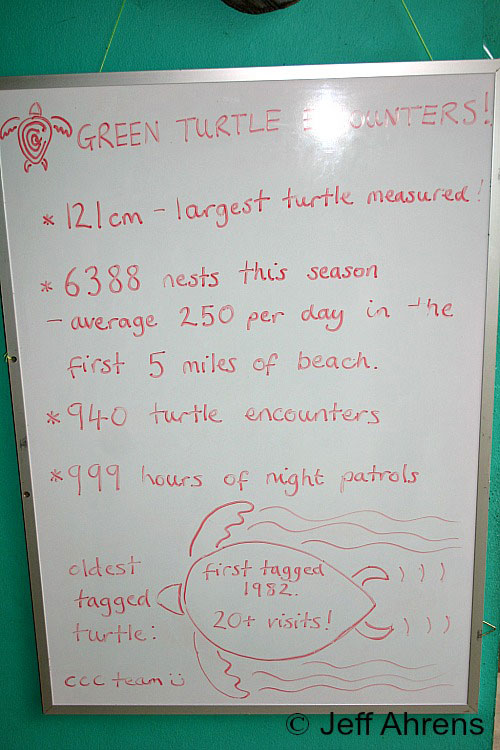 GREEN TURTLE ENCOUNTERS!
* 121cm - largest turtle measured!
* 6388 nests this season
- average 250 per day in the
first 5 miles of beach.
* 940 turtle encounters
* 999 hours of night patrols
oldest
tagged
turtle:
first tagged
1982.
20+ visits!
ccc team ü
© Jeff Ahrens